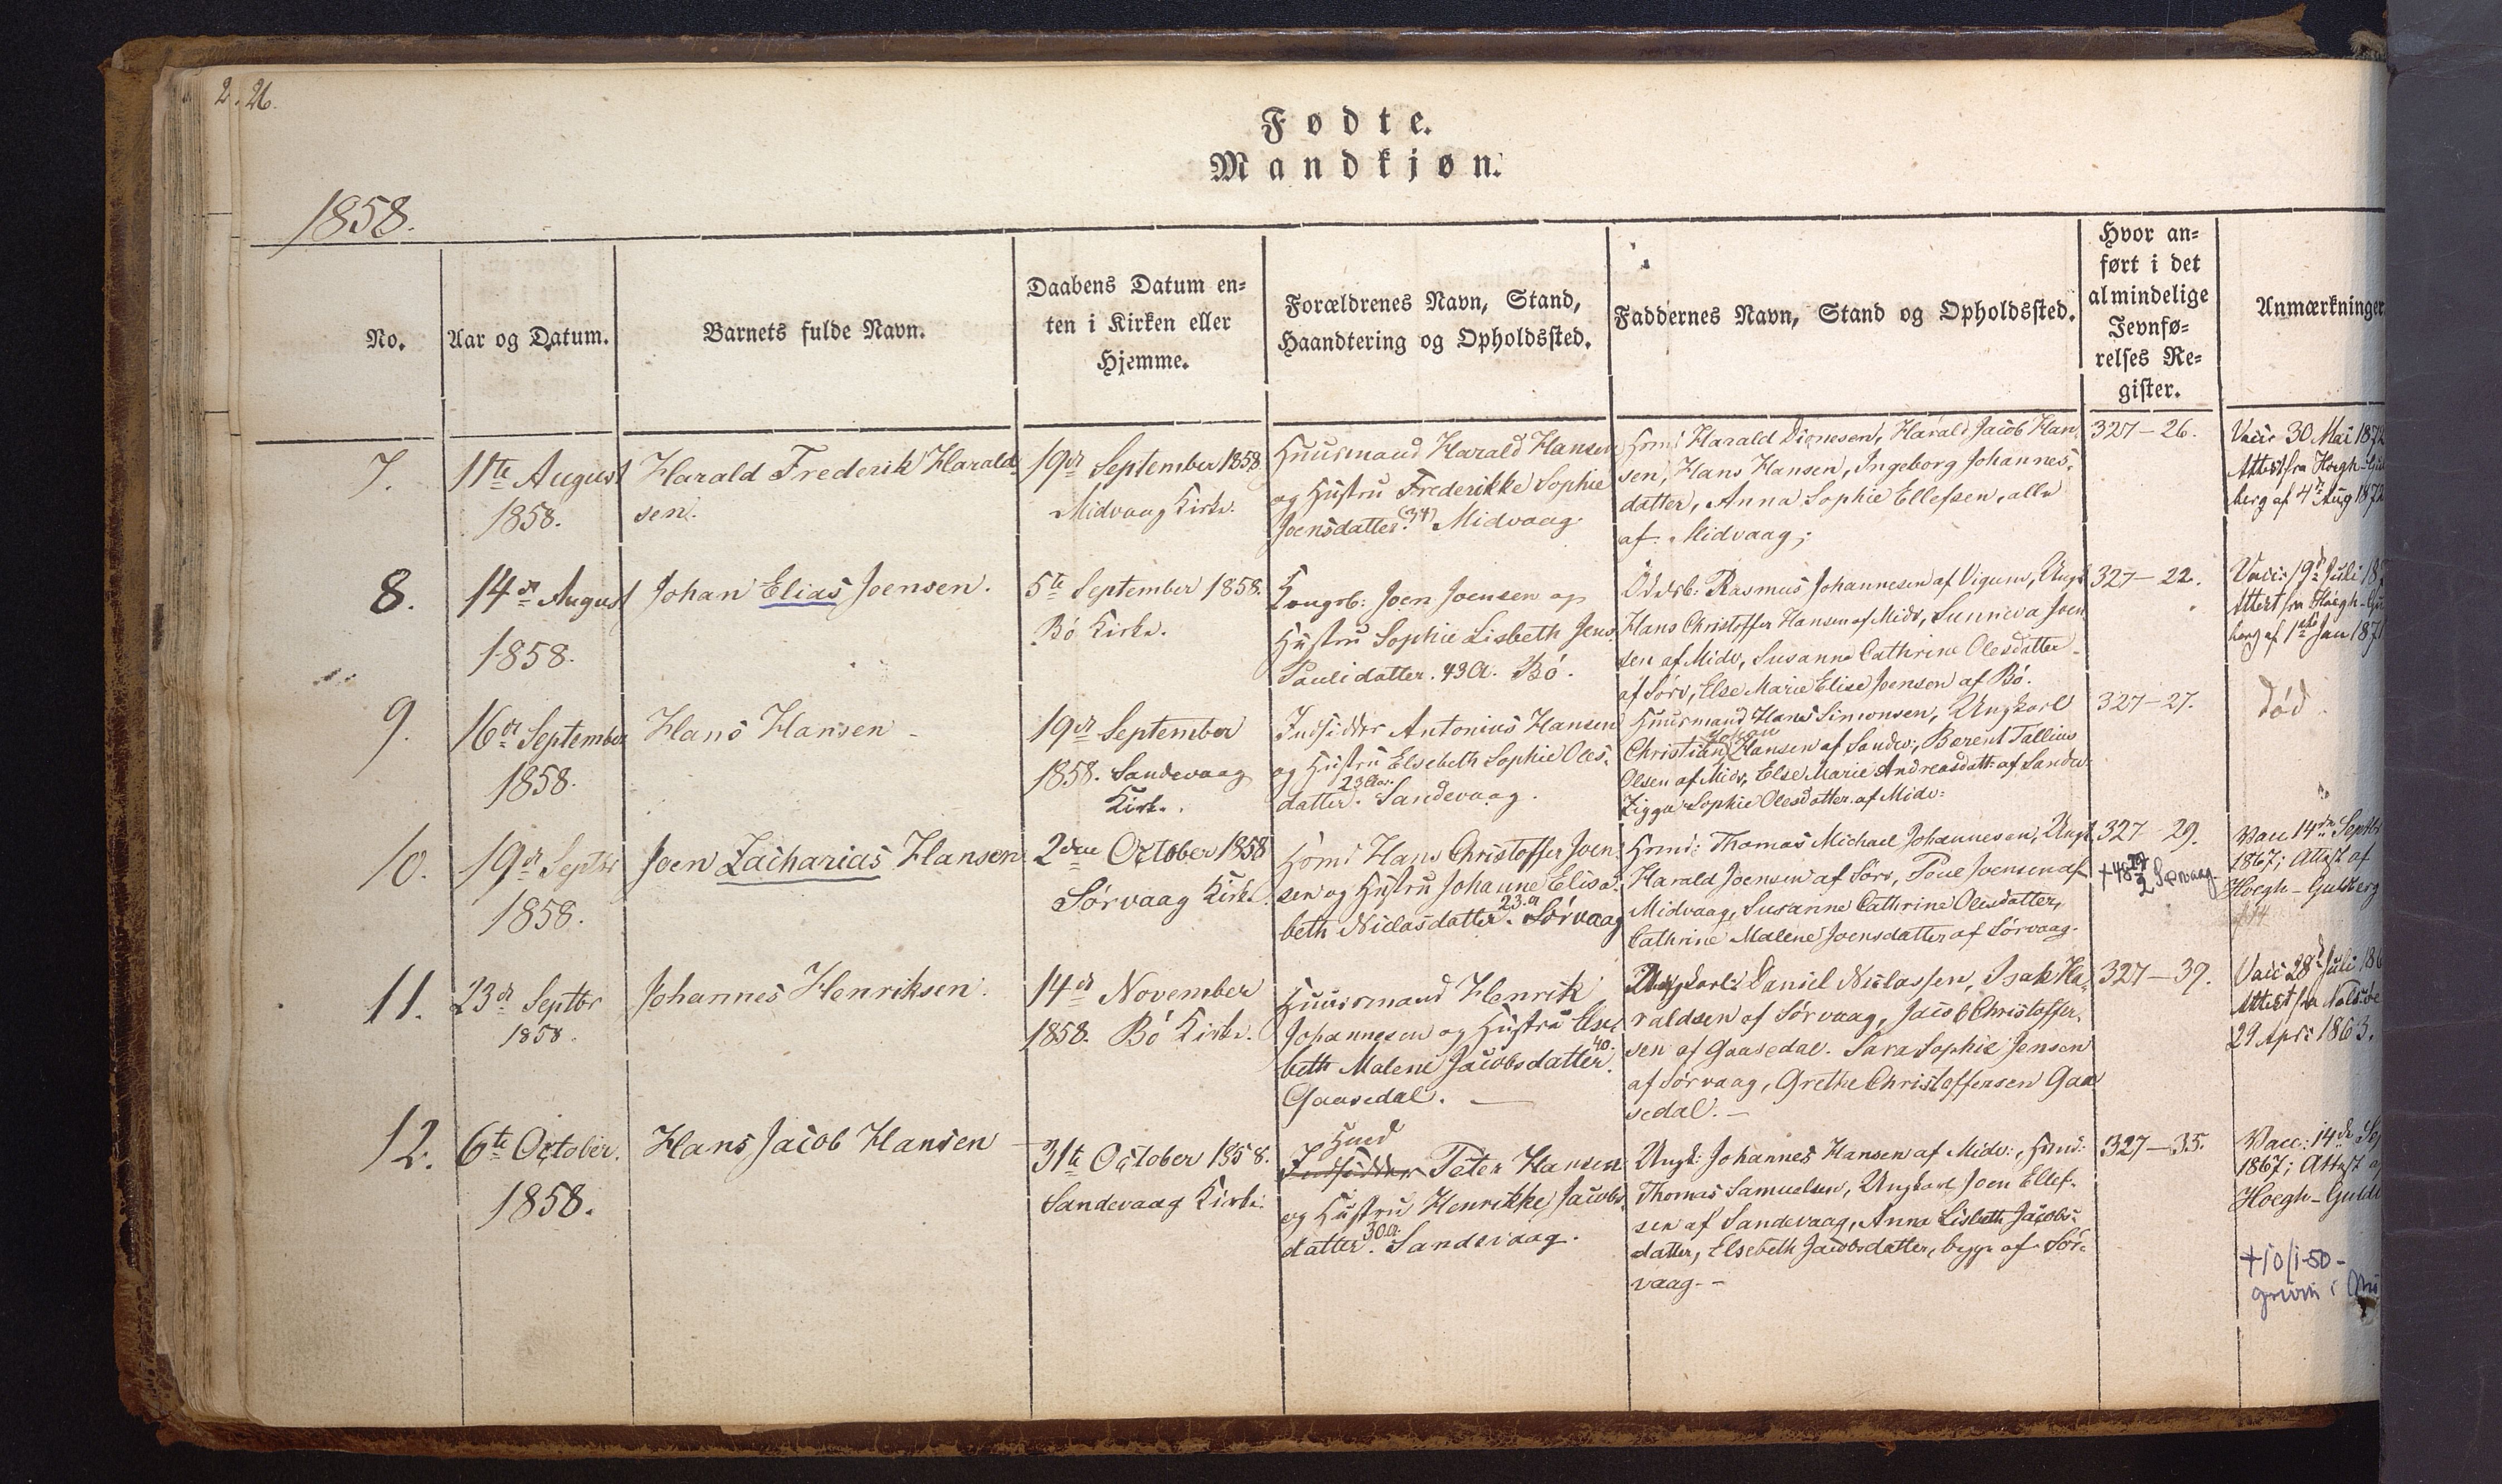 2. 26.
Fødte.
Mandkjøn.
1858.
No.
Aar og Datum.
Barnets fulde Navn.
Daabens Datum en-
ten i Kirken eller
Hjemme.
Forældrenes Navn, Stand,
Haandtering og Opholdssted.
Faddernes Navn, Stand og Opholdssted.
Hvor an-
ført i det
almindelige
Jevnfø-
relses Re-
gister.
Anmærkninger
7.
11te August
1858.
Harald Frederik Harald-
sen.
19de September 1858
Midvaag Kirke.
Huusmand Harald Hansen
og Hustru Frederikke Sophie
Joensdatter. (34) Midvaag
Hmd: Harald Dionesen, Harald Jacob Han-
sen, Hans Hansen, Ingeborg Johannes-
datter, Anna Sophie Ellefsen, alle
af Midvaag;
327-26.
Vacc 30 Mai 1872
Attest fra Høegh-Guld
berg af 4de Aug 1872
8.
14de August
1858.
Johan Elias Joensen.
5te September 1858.
Bø Kirke.
Kongsb: Joen Joensen og
Hustru Sophie Lisbeth Jens
Paulidatter. 43 A. Bø.
Odelsb: Rasmus Johannesen af Vigum, Ungk
Hans Christoffer Hansen af Midv, Sunneva Joen
sen af Midv, Susanne Cathrine Olesdatter
af Sørv, Else Marie Elise Joensen af Bø.
327-22.
Vacc: 19de Juli 18
Attest fra Høegh-Gu
berg af 1ste Jan 1871
9.
16de September
1858.
Hans Hansen
19de September
1858. Sandevaag
Kirke.
Indsidder Antonius Hansen
og Hustru Elsebeth Sophie Oles-
datter. 23 Aar. Sandevaag.
Huusmand Hans Simonsen, Ungkarl
Christian Johan Hansen af Sandev:, Berent Tallius
Olsen af Midv, Else Marie Andreasdatt: af Sandev:
Zigga Sophie Olesdatter af Midv:
327-27.
død
10.
19de Septbr
1858.
Joen Zacharias Hansen
2den October 1858
Sørvaag Kirke.
Hsmd Hans Christoffer Joen-
sen og Hustru Johanne Elisa-
beth Niclasdatter. 23 a Sørvaag
Hmd: Thomas Michael Johannesen, Ungk
Harald Joensen af Sørv, Poul Joensen af
Midvaag, Susanne Cathrine Olesdatter,
Cathrine Malene Joensdatter af Sørvaag.
327-29.
+48 29/2 Sørvaag.
Vacc 14de Septbr
1867; Attest af
Hoegh-Guldberg
11.
23de Septbr
1858.
Johannes Henriksen.
14de November
1858. Bø Kirke.
Huusmand Henrik
Johannesen og Hustru Else-
beth Malene Jacobsdatter. 40.
Gaasedal.
Ungkarl: Daniel Niclassen, Isak Ha-
raldsen af Sørvaag, Jacob Christoffer-
sen af Gaasedal. Sara Sophie Jensen
af Sørvaag, Grethe Christoffersen Gaa
sedal.
327-39.
Vacc 28de Juli 186
Attest fra Nolsøe
29 April 1863.
12.
6te October.
1858.
Hans Jacob Hansen
31te October 1858.
Sandevaag Kirke.
Hmd
Indsidder Peter Hansen
og Hustru Henrikke Jacobs
datter. 30 a. Sandevaag.
Ungk: Johannes Hansen af Midv:, Hmd:
Thomas Samuelsen, Ungkarl Joen Ellef-
sen af Sandevaag, Anna Lisbeth Jacobs-
datter, Elsebeth Jacobsdatter, begge af Sør-
vaag.
327-35.
Vacc: 14de Se
1867; Attest a
Hoegh-Guld
+10/1-50-